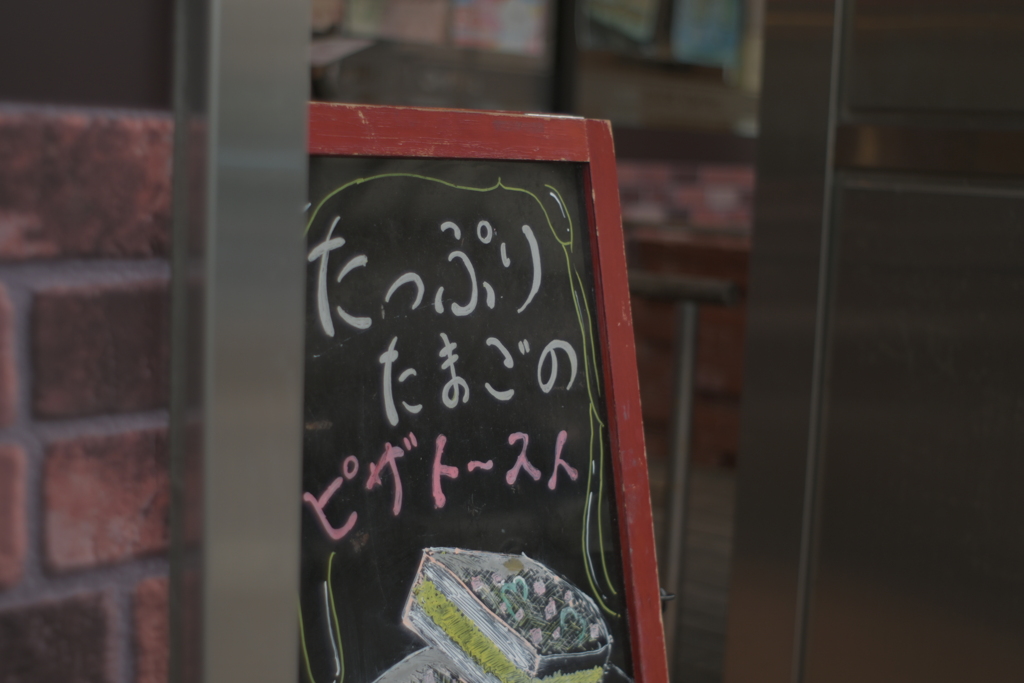 たっぷり
たまごの
ピザトースト